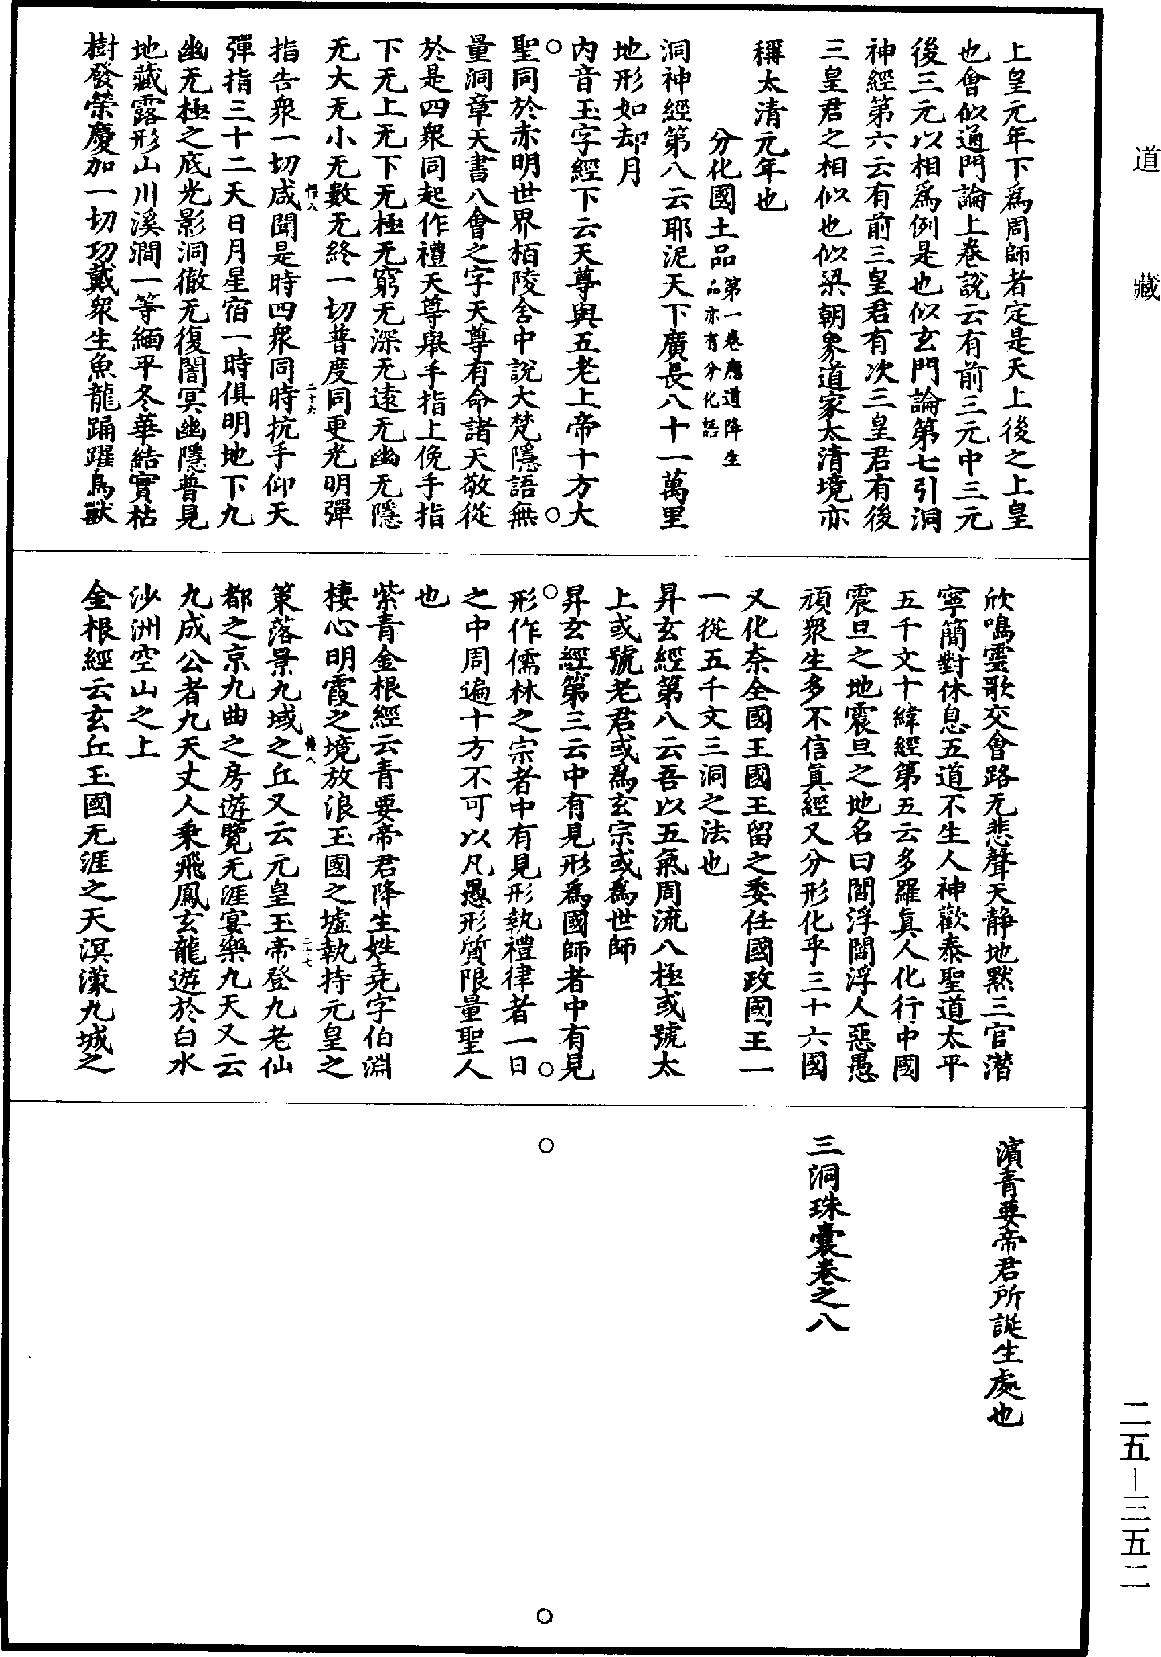 道藏
上皇元年下爲周師者定是天上後之上皇
也會似道門論上卷說云有前三元中三元
後三元以相爲例是也似玄門論第七引洞
神經第六云有前三皇君有次三皇君有後
三皇君之相似也似梁朝象道家太清境亦
稱太清元年也
分化國土品第一卷應道降生品亦有分化語
洞神經第八云耶泥天下廣長八十一萬里
地形如却月
内音玉字經下云天尊與五老上帝十方大
聖同於赤明世界栢陵舍中說大梵隱語無
量洞章天書八會之字天尊有命諸天敬從
於是四衆同起作禮天尊舉手指上俛手指
下无上无下无極无窮无深无遠无幽无隱
无大无小无數无終一切普度同更光明彈
指告衆一切咸聞是時四衆同時抗手仰天
彈指三十二天日月星宿一時俱明地下九
幽无極之底光影洞徹无復闇冥幽隱普見
地藏露形山川溪澗一等緬平冬華結實枯
樹發榮慶加一切功戴衆生魚龍踊躍鳥獸
欣鳴靈歌交會路无悲聲天靜地默三官潛
寧簡對休息五道不生人神歡泰聖道太平
五千文十緯經第五云多羅真人化行中國
震旦之地震旦之地名曰閻浮閻浮人惡愚
頑衆生多不信真經又分形化乎三十六國
又化奈全國王國王留之委任國政國王一
一從五千文三洞之法也
昇玄經第八云吾以五氣周流八極或號太
上或號老君或爲玄宗或爲世師
昇玄經第三云中有見形爲國師者中有見
形作儒林之宗者中有見形執禮律者一日
之中周遍十方不可以凡愚形質限量聖人
也
紫青金根經云青要帝君降生姓堯字伯淵
棲心明霞之境放浪玉國之墟執持元皇之
策落景九域之丘又云元皇玉帝登九老仙
都之京九曲之房遊覽无涯宴樂九天又云
九成公者九天丈人乘飛鳳玄龍遊於白水
沙洲空山之上
金根經云玄丘玉國无涯之天溟濛九城之
濱青要帝君所誕生處也
三洞珠囊卷之八
二五—三五二